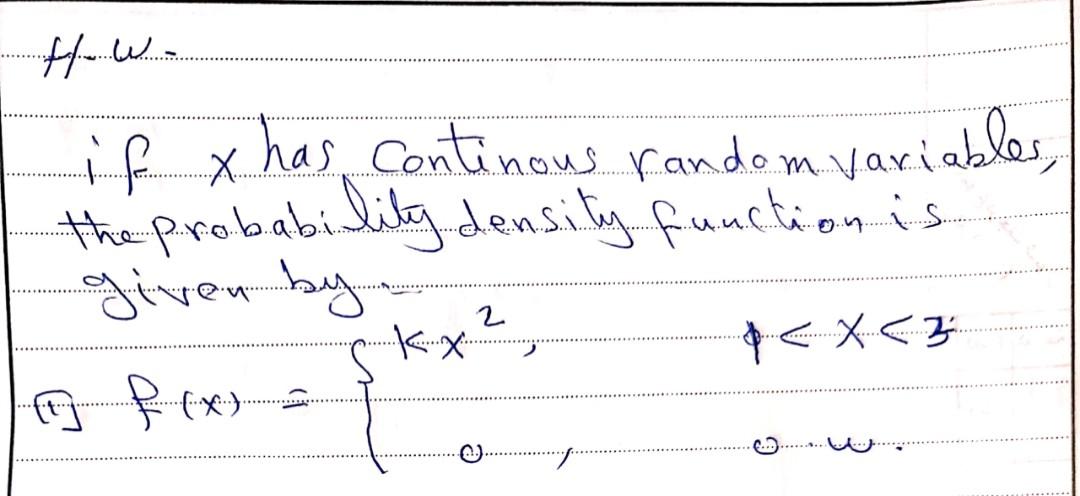 H-W-
if x has Continous random variables,
the probability density function is
given by -
[1] f(x) = { kx², < x <
0, o.w.